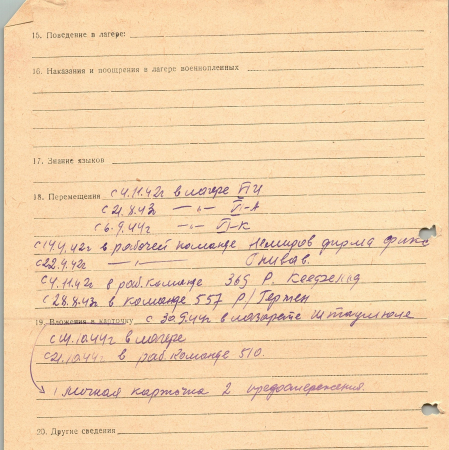 15. Поведение в лагере:
16. Наказания и поощрения в лагере военнопленных
17. Знание языков
18. Перемещения с 4.11.42г в лагере
с 21.8.43г — „ —
с 6.9.44г — „ —
с 14.4.42г в рабочей команде Немиров фирма
с 22.9.42г — „ —
с 4.11.42г в раб. команде 365 Р.
с 28.8.43г в команде 557 Р/Гержен
19. Вложения в карточку с 30.9.44г в лазарете
с 4.10.44г в лагере
с 21.10.44г в раб. команде 510.
1 личная карточка 2 предостережения.
20. Другие сведения